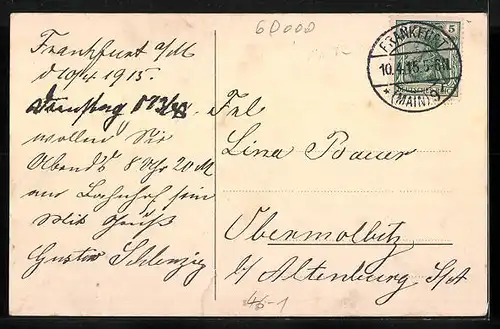 6D000
Frankfurt a/M
d 10/4 1915.
wollen Sie
Abends 8 Uhr 20 M
am Bahnhof sein
Mit Gruß
Gustav Schlenzig
FRANKFURT
10.4.15.5-6N
* (MAIN) 9
5
Frl
Lina Bauer
Obermolbitz
b/ Altenburg S/A
45-1